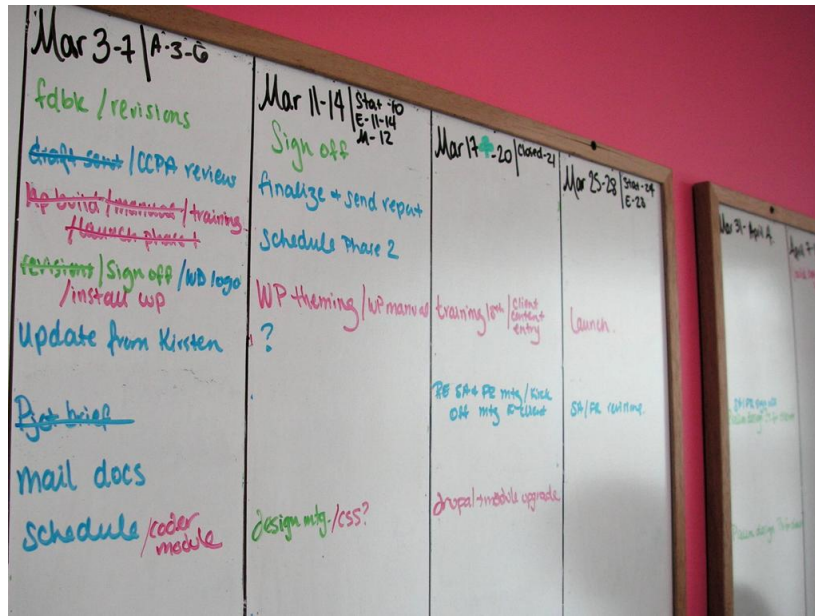 Mar 3-7 | A-3-6
fdbk / revisions
draft sent / CCPA review
wp build / manual / training
/ launch phase 1
revisions / Sign off / WD logo
/ install wp
update from Kirsten
Pjct brief
mail docs
schedule / coder
module
Mar 11-14 | Stat-10
E-11-14
M-12
Sign off
finalize + send report
schedule Phase 2
WP theming / WP manual
?
design mtg. / CSS?
Mar 17 -20 | Closed-21
training 18th / client
content
entry
RE SA & PE mtg / Kick
off mtg client
drupal module upgrade
Mar 25-28 | Stat-24
E-28
Launch
SA/PE revisions
Mar 31- April 4
April 7-
design
design